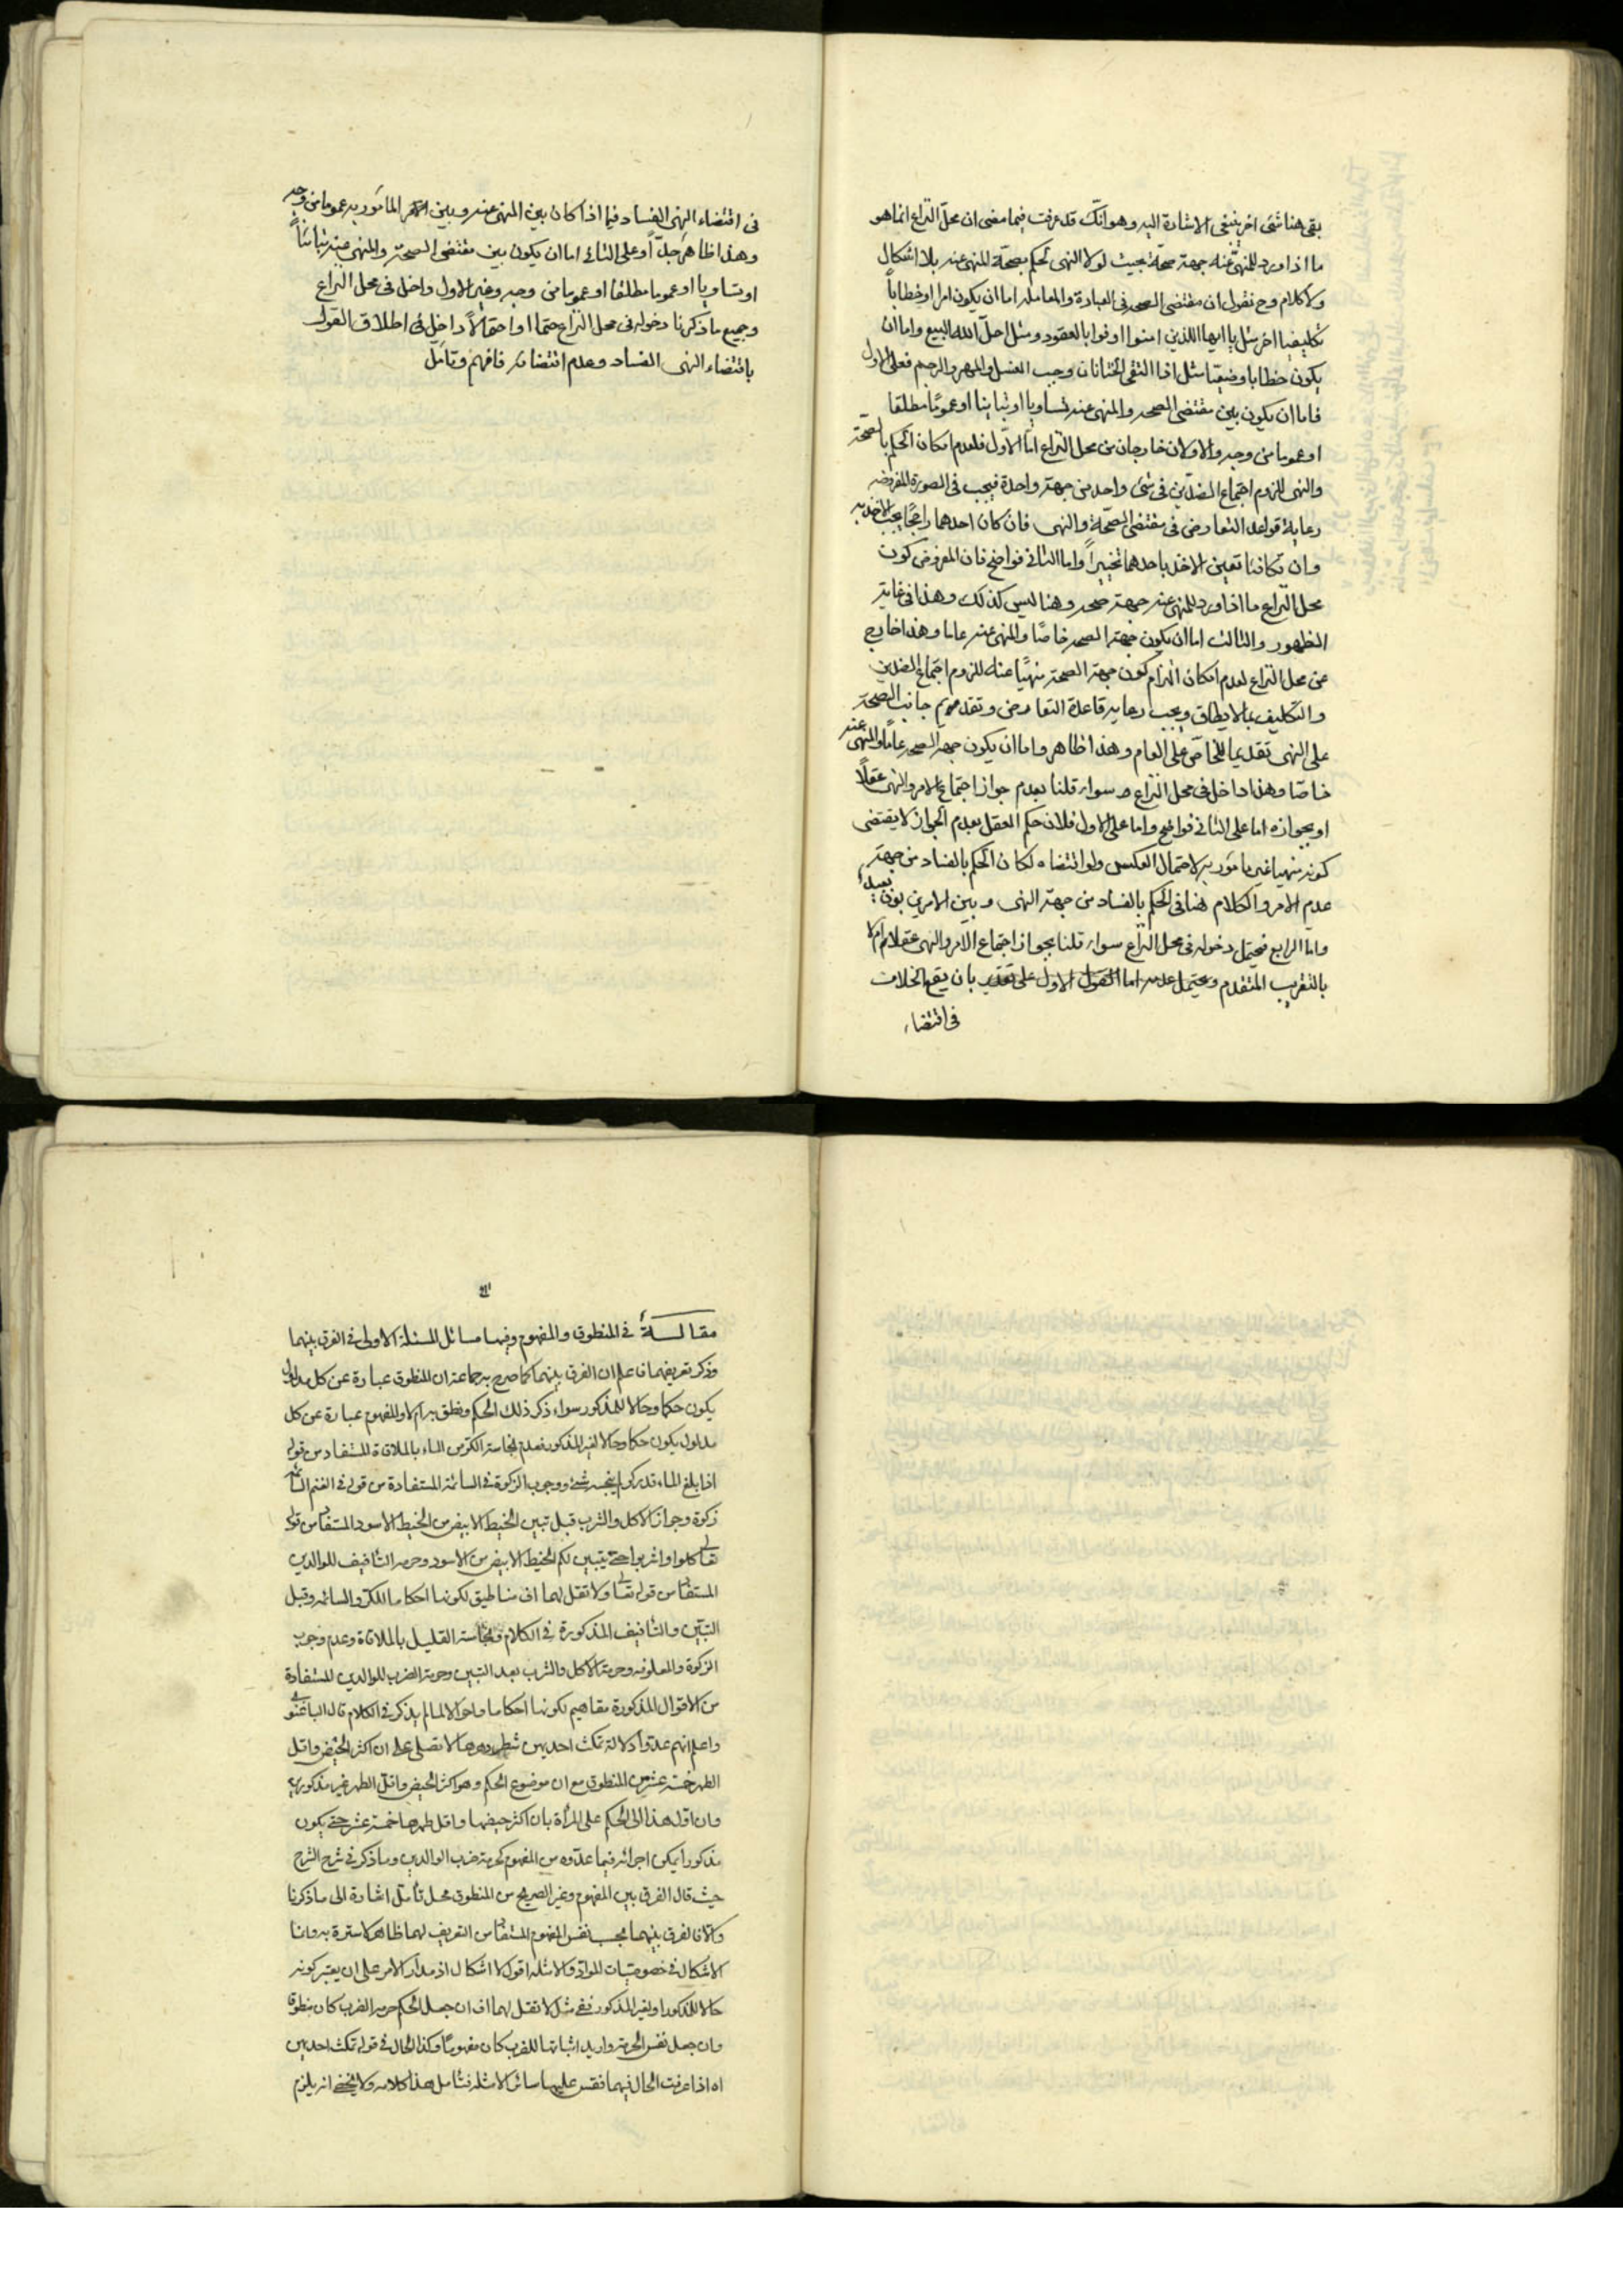 بقى هنا شئ اخر ينبغى الاشارة اليه وهو انّك قد عرفت فيما مضى ان محلّ النزاع انما هو
ما اذا ورد للمنهى عنه جهة صحة بحيث لولا النهى لحكم بصحّة المنهى عنه بلا اشكال
ولا كلام وح نقول ان مقتضى الصحه فى العبادة والمعامله اما ان يكون امرا او خطاباً
تكليفيا اخر مثل يا ايها اللذين امنوا اوفوا بالعقود ومثل احلّ الله البيع واما ان
يكون خطابا وضعيّا مثل اذا التقى الختانان وجب الغسل والمهر والرجم فعلى الاول
فاما ان يكون بين مقتضى الصحه والمنهى عنه تساويا او تباينا او عموما مطلقا
او عموما من وجه والاولان خارجان من محل النزاع امّا الاوّل فلعدم امكان الحكم بالصحّة
والنهى للزوم اجتماع الضدّين فى شئ واحد من جهة واحدة فيجب فى الصورة المفروضه
رعاية قواعد التعارض فى مقتضى الصحّة والنهى فان كان احدهما راجحًا يجب الاخذ به
وان تكافئا تعين الاخذ باحدهما تخييراً واما الثانى فواضح فان المفروض كون
محل النزاع ما اذا ورد للمنهى عنه جهة صحه وهنا ليس كذلك وهذا فى غاية
الظهور والثالث اما ان يكون جهة الصحه خاصًا والمنهى عنه عاما وهذا خارج
عن محل النزاع لعدم امكان التزام كون جهة الصحة منهيًا عنه للزوم اجتماع الضدين
والتكليف بما لا يطاق ويجب رعاية قاعدة التعارض وتقديم جانب الصحة
على النهى تقديما للخاصّ على العام وهذا ظاهر واما ان يكون جهة الصحه عاما والمنهى عنه
خاصّا وهذا داخل فى محل النزاع سواء قلنا بعدم جواز اجتماع الامر والنهى عقلًا
او بجوازه اما على الثانى فواضح واما على الاول فلان حكم العقل بعدم الجواز لا يقتضى
كونه منهيا غير مامور به لاحتمال العكس ولو اقتضاه لكان الحكم بالفساد من جهة
عدم الامر والكلام هنا فى الحكم بالفساد من جهة النهى وبين الامرين بون بعيد
واما الرابع فيحتمل دخوله فى محل النزاع سواء قلنا بجواز اجتماع الامر والنهى عقلا ام لا
بالتقريب المتقدم ويحتمل عدمه اما القول الاول على تقدير بان يقع الخلاف
فى اقتضاء
فى اقتضاء النهى الفساد فيما اذا كان بين المنهى عنه وبين المامور به عموما من وجه
وهذا ظاهر جلّاً وعلى الثانى اما ان يكون بين مقتضى الصحة والمنهى عنه تبايناً
او تساويا او عموما مطلقا او عموما من وجه وغير الاول داخل فى محل النزاع
وجميع ما ذكرنا دخوله فى محل النزاع حتما او احتمالاً داخل فى اطلاق القول
باقتضاء النهى الفساد وعدم اقتضائه فافهم وتامّل
مقالة فى المنطوق والمفهوم وفيها مسائل المسئلة الاولى فى الفرق بينهما
وذكر تعريفهما فاعلم ان الفرق بينهما كما صرح به جماعة ان المنطوق عبارة عن كل مدلول
يكون حكما وحالا للمذكور سواء ذكر ذلك الحكم ونطق به ام لا والمفهوم عبارة عن كل
مدلول يكون حكما وحالا لغير المذكور فعدم نجاسة الكر من الماء بالملاقاة المستفاد من قوله
اذا بلغ الماء قدر كر لم ينجسه شئ ووجوب الزكوة فى السائمة المستفادة من قوله فى الغنم السائمة
زكوة وجواز الاكل والشرب قبل تبين الخيط الابيض من الخيط الاسود المستفاد من قوله
تعالى كلوا واشربوا حتى يتبين لكم الخيط الابيض من الاسود وحرمه التافيف للوالدين
المستفاد من قوله تعالى ولا تقل لهما اف مناطيق لكونها احكاما للكر والسائمه وقبل
التبيّن والتافيف المذكورة فى الكلام ونجاسة القليل بالملاقاة وعدم وجوب
الزكوة والمعلوفه وحرمة الاكل والشرب بعد التبين وحرمة الضرب للوالدين المستفادة
من الاقوال المذكورة مفاهيم لكونها احكاما واحوالا لما لم يذكر فى الكلام قال الباغنوى
واعلم انهم عدّوا دلالة تمكث احديهن شطر دهرها لا تصلى على ان اكثر الحيض واقل
الطهر خمسة عشر من المنطوق مع ان موضوع الحكم وهو اكثر الحيض واقل الطهر غير مذكور
وان اوّل هذا الى الحكم على المرأة بان اكثر حيضها واقل طهرها خمسة عشر حتى يكون
مذكوراً يمكن اجرائه فيما عدّوه من المفهوم كحرمة ضرب الوالدين وما ذكر فى شرح الشرح
حيث قال الفرق بين المفهوم وغير الصريح من المنطوق محل تأمّل اشارة الى ما ذكرنا
والا فالفرق بينهما بحسب نفس المفهوم المستفاد من التعريف لهما ظاهر لا سترة به وانما
الاشكال فى خصوصيات المواد والامثله اقول لا اشكال اذ مدار الامر على ان يعتبر كونه
حالا للمذكور او لغير المذكور ففى مثل لا تقل لهما اف ان جعل الحكم حرمة الضرب كان منطوقا
وان جعل نفس الحرمة واريد اثباتها للضرب كان مفهوماً وكذا الحال فى قوله تمكث احديهن
اه اذا عرفت الحال فيهما فقس عليهما سائر الامثله فتأمل هذا كلامه ولا يخفى انه يلزم